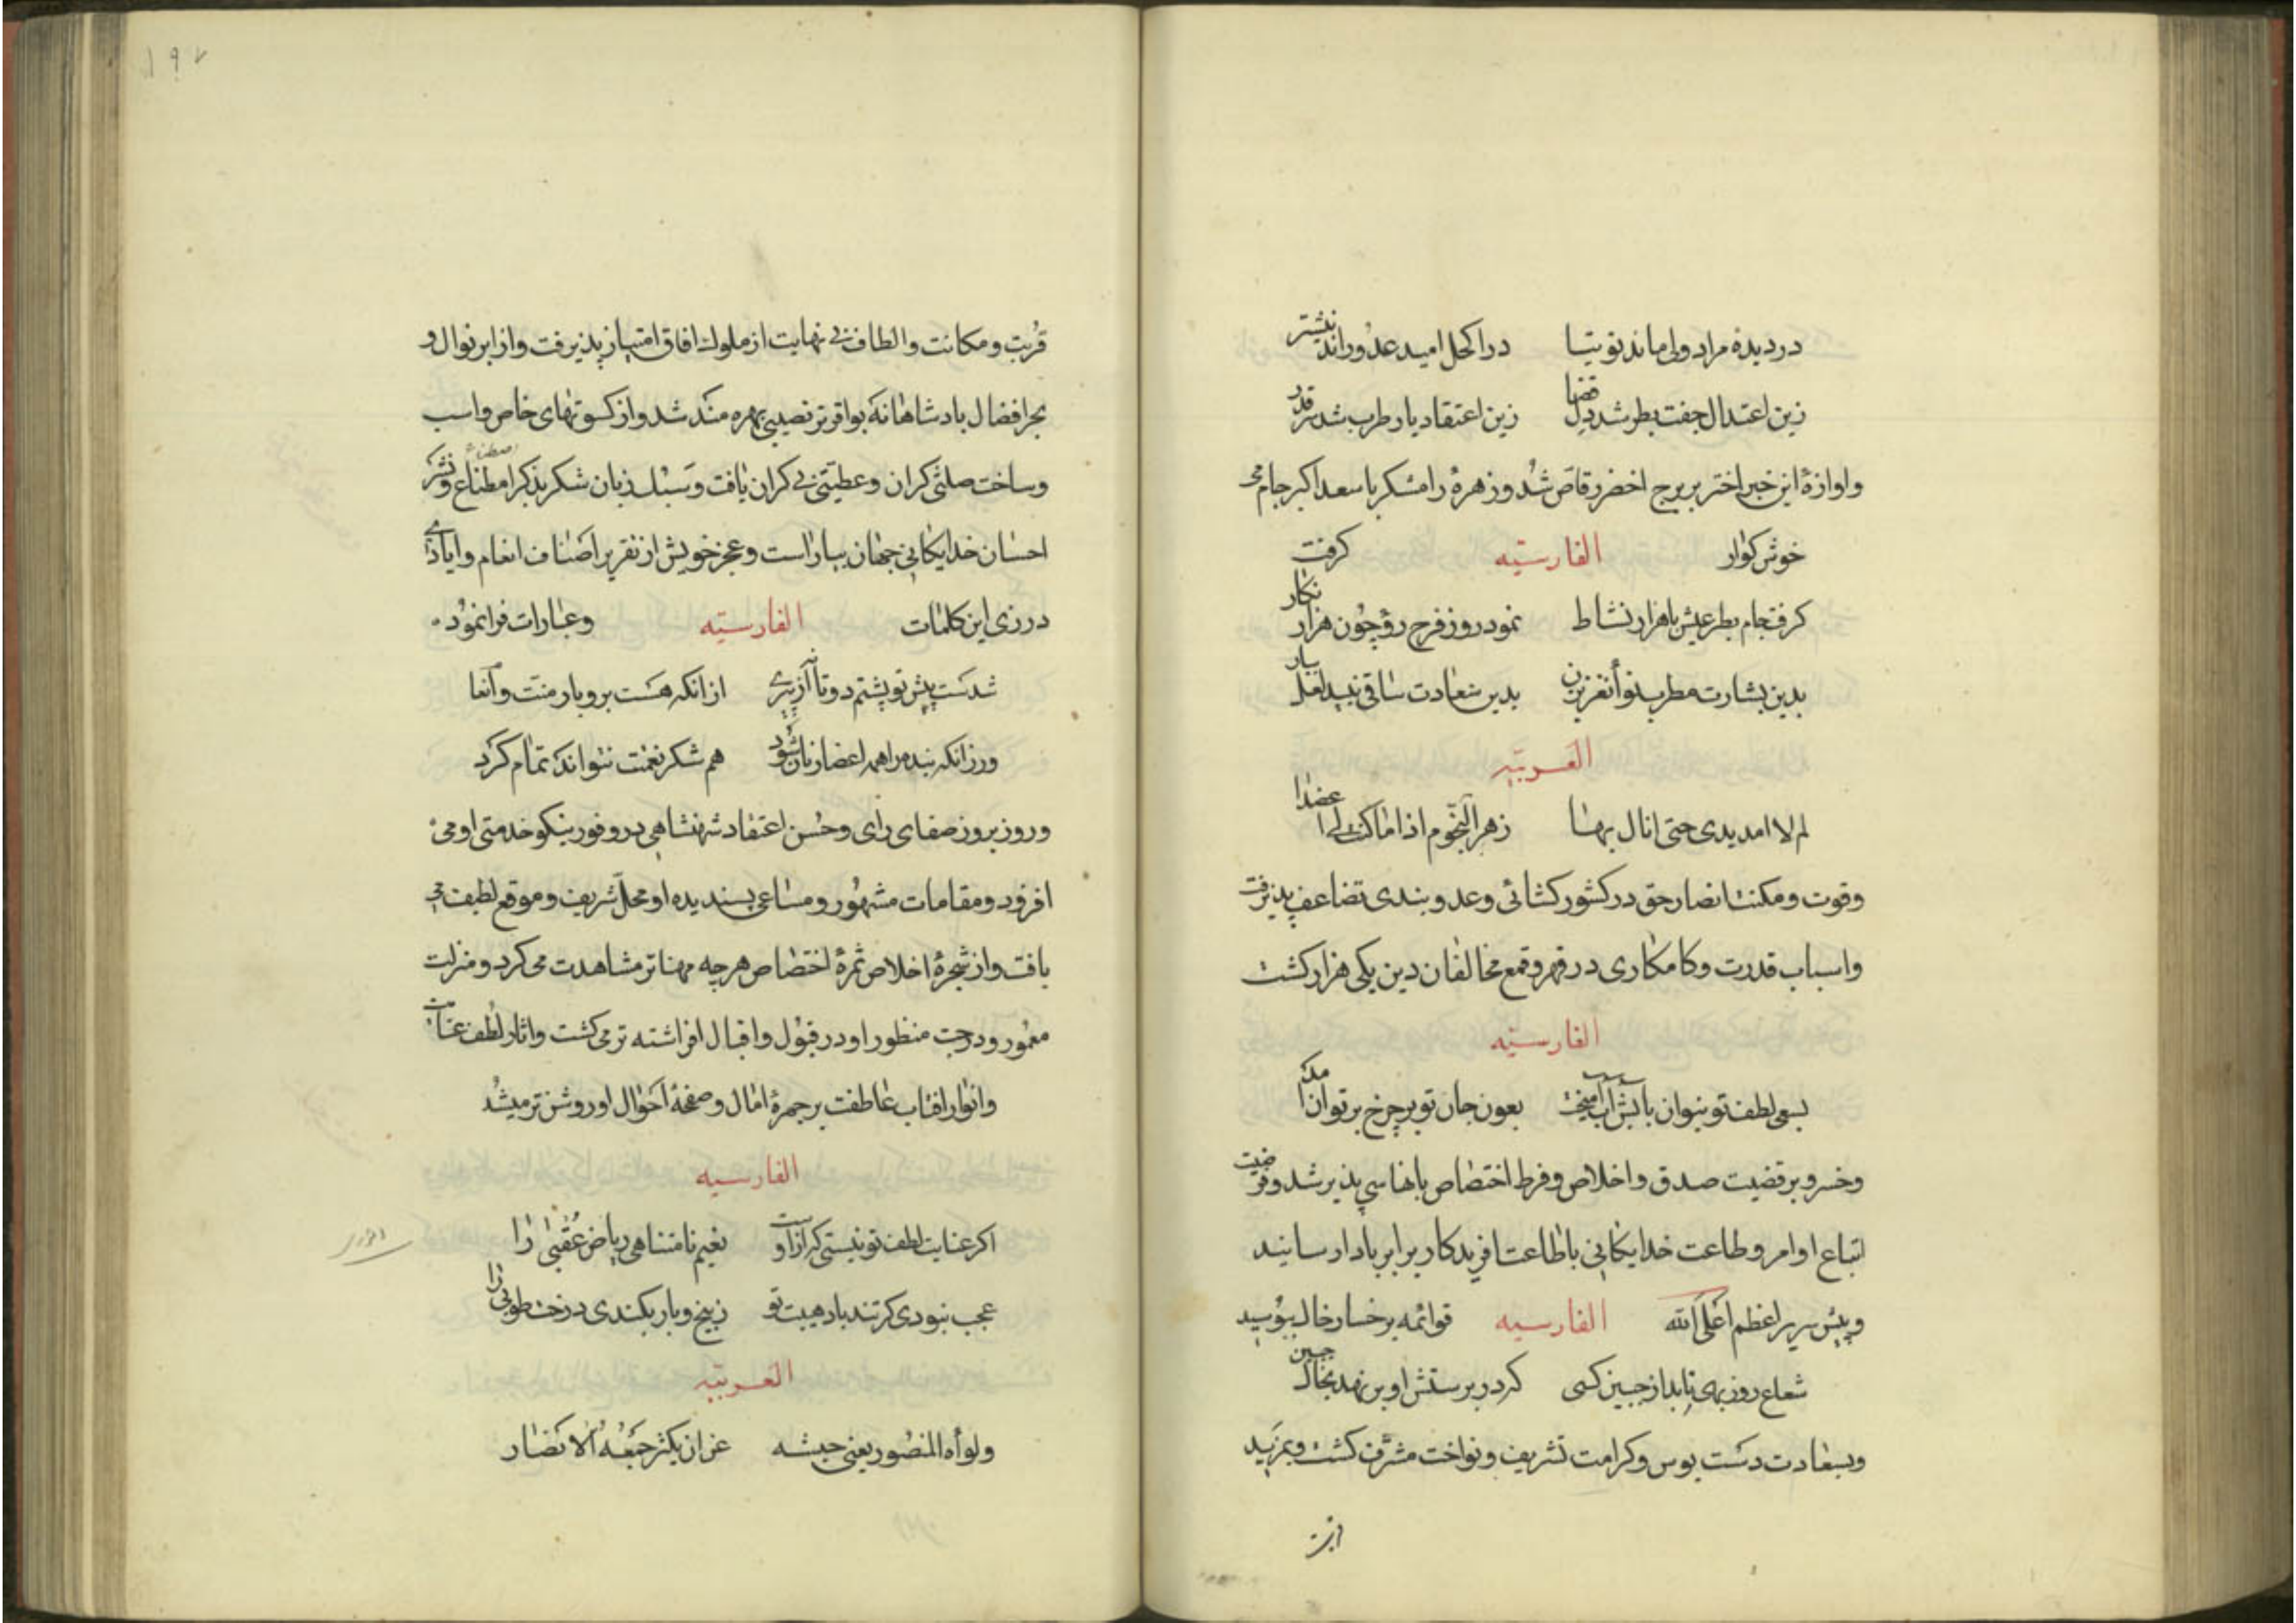 در دیدهٔ مراد ولی ماند توتیا درا کحل امید عدو راند نیشتر
زین اعتدال جفت بطر شد دل قضا زین اعتقاد یار طرب شد سر قدر
و اوازهٔ این خبر اختر بر برج اخضر رقاص شد و زهرهٔ رامشکر با سعد اکبر جام
خوش کوار الفارسیّه کرفت
کرفت جام بطر عیش با هزار نشاط نمود روز فرح رو چون هزار نکار
بدین بشارت مطرب نوا نغز بزن بدین سعادت ساقی نبید لعل بیار
العربیّه
لم لا امد یدی حتی انال بها زهر النجوم اذا ما کنت لی عضدا
و قوت و مکنت انصار حق در کشور کشائی و عدو بندی تضاعف پذیرفت
و اسباب قدرت و کامکاری در قهر و قمع مخالفان دین یکی هزار کشت
الفارسیّه
بسعی لطف تو بتوان بآتش آب آمیخت بعون جان تو بر چرخ بر توان آمد
و خسرو بر قضیت صدق و اخلاص و فرط اختصاص باخاسپی پذیر شد و
اتباع اوامر و طاعت خدایکانی باطاعت افریدکار برابر بادا رسانید
و پیش سریر اعظم اعلی الله الفارسیه قوائمه بر خسار خاک ببوسید
شعاع روز بهی تابد از جبین کسی کرد در پرستش او بر نهد بخاک جبین
و بسعادت دست بوس و کرامت تشریف و نواخت مشرّف کشت و بمزید
۱۹۷
قربت و مکانت و الطاف بی نهایت از ملوک افاق امتیاز پذیرفت و از ابر نوال و
بحر افضال بادشاهانه بوافرتر نصیبی بهره مند شد و از کسوتهای خاص و اسب
و ساخت صلتی کران و عطیّتی بی کران یافت و بسیل زبان شکر بذکر اصطناع و نشر
احسان خدایکانی جهان بیاراست و عجز خویش از تقریر اصناف انعام و ایادی
در زی این کلمات الفارسیّه و عبارات فرا نمود
شدست پیش تو پشتم دوتا نه آز پیری از انکه هست برو بار منت و آنعا
ور زانکه بنده را همه اعضا زبان شود هم شکر نعمت نتواند تمام کرد
و روز بروز صفای رای و حسن اعتقاد شهنشاهی در وفور نیکو خدمتی او می
افزود و مقامات مشهور و مساعی بسندیده او محل شریف و موقع لطیف می
یافت و از شجرهٔ اخلاص ثمرهٔ اختصاص هر چه مهناتر مشاهدت می کرد و منزلت
معمور و درجت منظور او در قبول و اقبال افراشته تر می کشت و اثار لطف عنایت
و انوار افتاب عاطفت بر جمرهٔ امال و صفحهٔ احوال او روشن تر میشد
الفارسیه
اکر عنایت لطف تو نیستی که ازاوست نعیم نامتناهی ریاض عقبی را
عجب نبودی کر تند باد هیبت تو ز بیخ و بار بکندی درخت طوبی را
العربیّه
و لواه المنصور یغنی جیشه عن ان یکثر جمعه الانصار